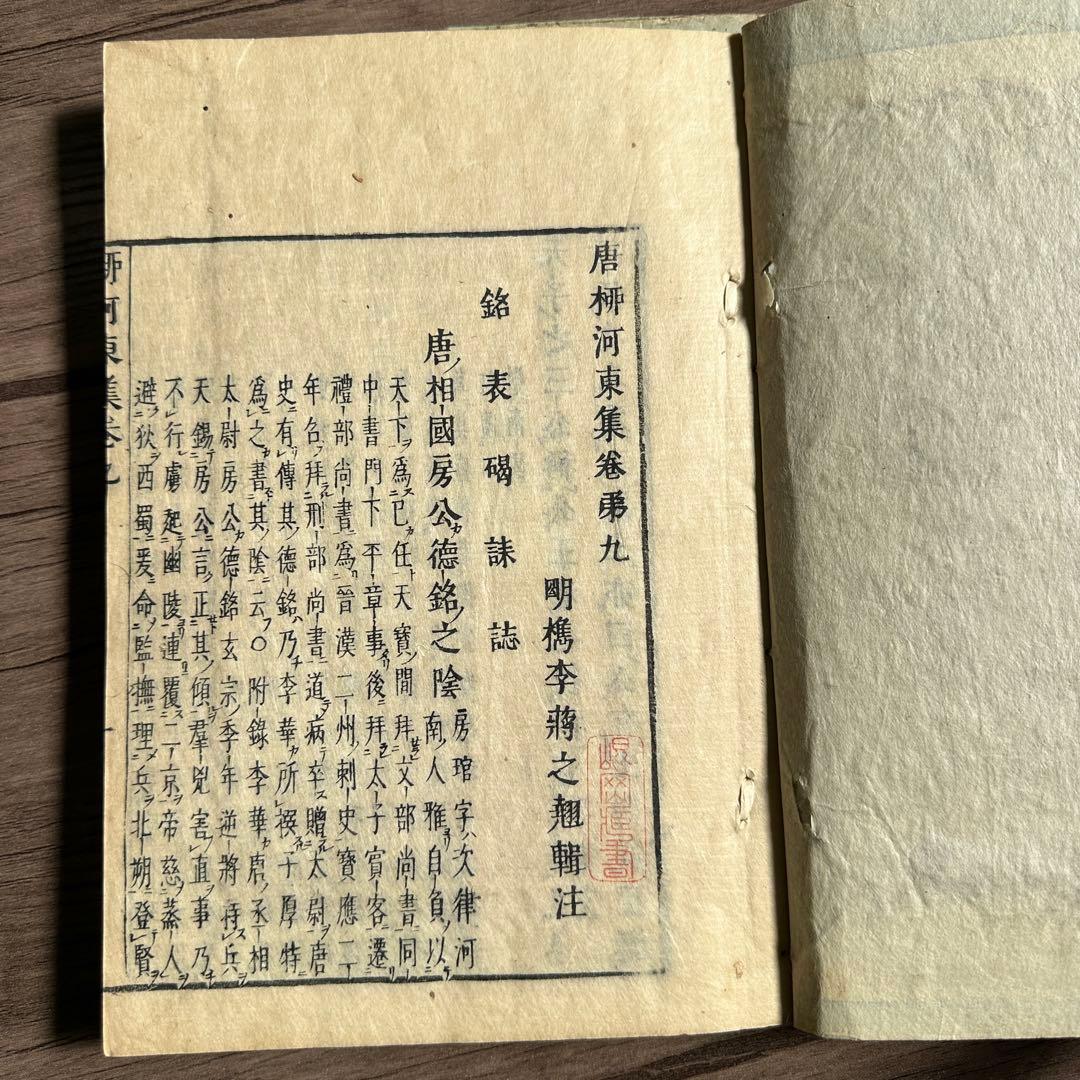 唐桺河東集卷弟九
明檇李蔣之翹輯注
銘表碣誄誌
唐相國房公德銘之陰
房琯字次律河
南人雅自負以
天下爲已任天寶間拜文部尚書同
中書門下平章事後拜太子賓客遷
禮部尚書爲晉漢二州刺史寶應二
年召拜刑部尚書道病卒贈太尉唐
史有傳其德銘乃李華所撰子厚特
爲之書其陰云○附錄李華唐丞相
太尉房公德銘玄宗季年逆將持兵
天錫房公言正其傾羣兇害直事乃
不行虜起幽陵連覆二京帝慈蒸人
避狄西蜀爰命監撫理兵北朔登賢
桺河東集卷九
一